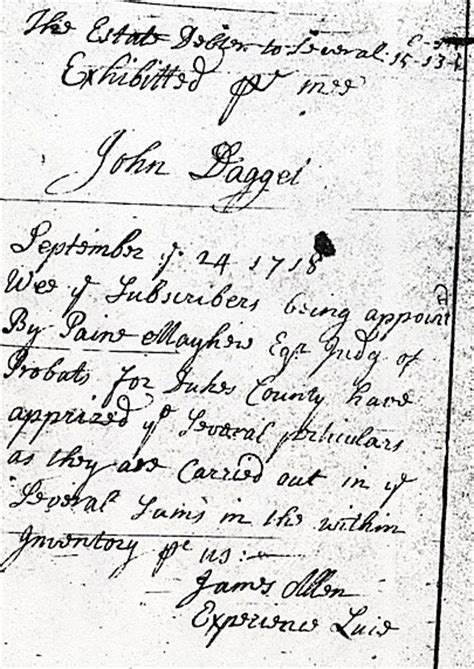 The Estate Debter to Several 15-13-
Exhibitted pr mee
John Dagget
September ye 24 1718
Wee ye Subscribers being appointd
By Paine Mayhew Esqr Judg of
Probats for Dukes County have
apprized ye Several perticulars
as they are Carried out in ye
Several Sums in the within
Inventory pr us:-
James Allen
Experience Luce